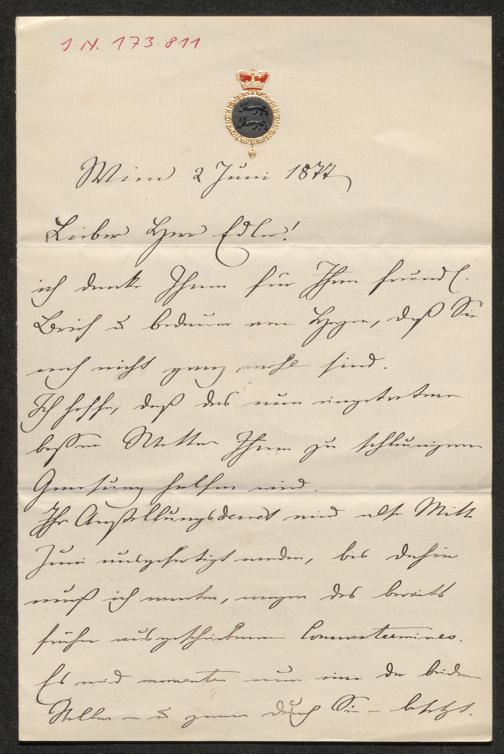 J.N. 173.811
Wien 2 Juni 1877
Lieber Herr Edler!
ich danke Ihnen für Ihren freundl.
Brief u bedauere von Herzen, daß Sie
noch nicht ganz wohl sind.
Ich hoffe, daß das nun eingetretene
bessere Wetter Ihnen zu schleuniger
Genesung helfen wird.
Ihr Anstellungsdecret wird erst Mitte
Juni ausgefertigt werden, bis dahin
muß ich warten, wegen des bereits
früher ausgeschriebenen Concurstermines.
Es wird momentan nur eine der beiden
Stellen – u zwar durch Sie – besetzt.